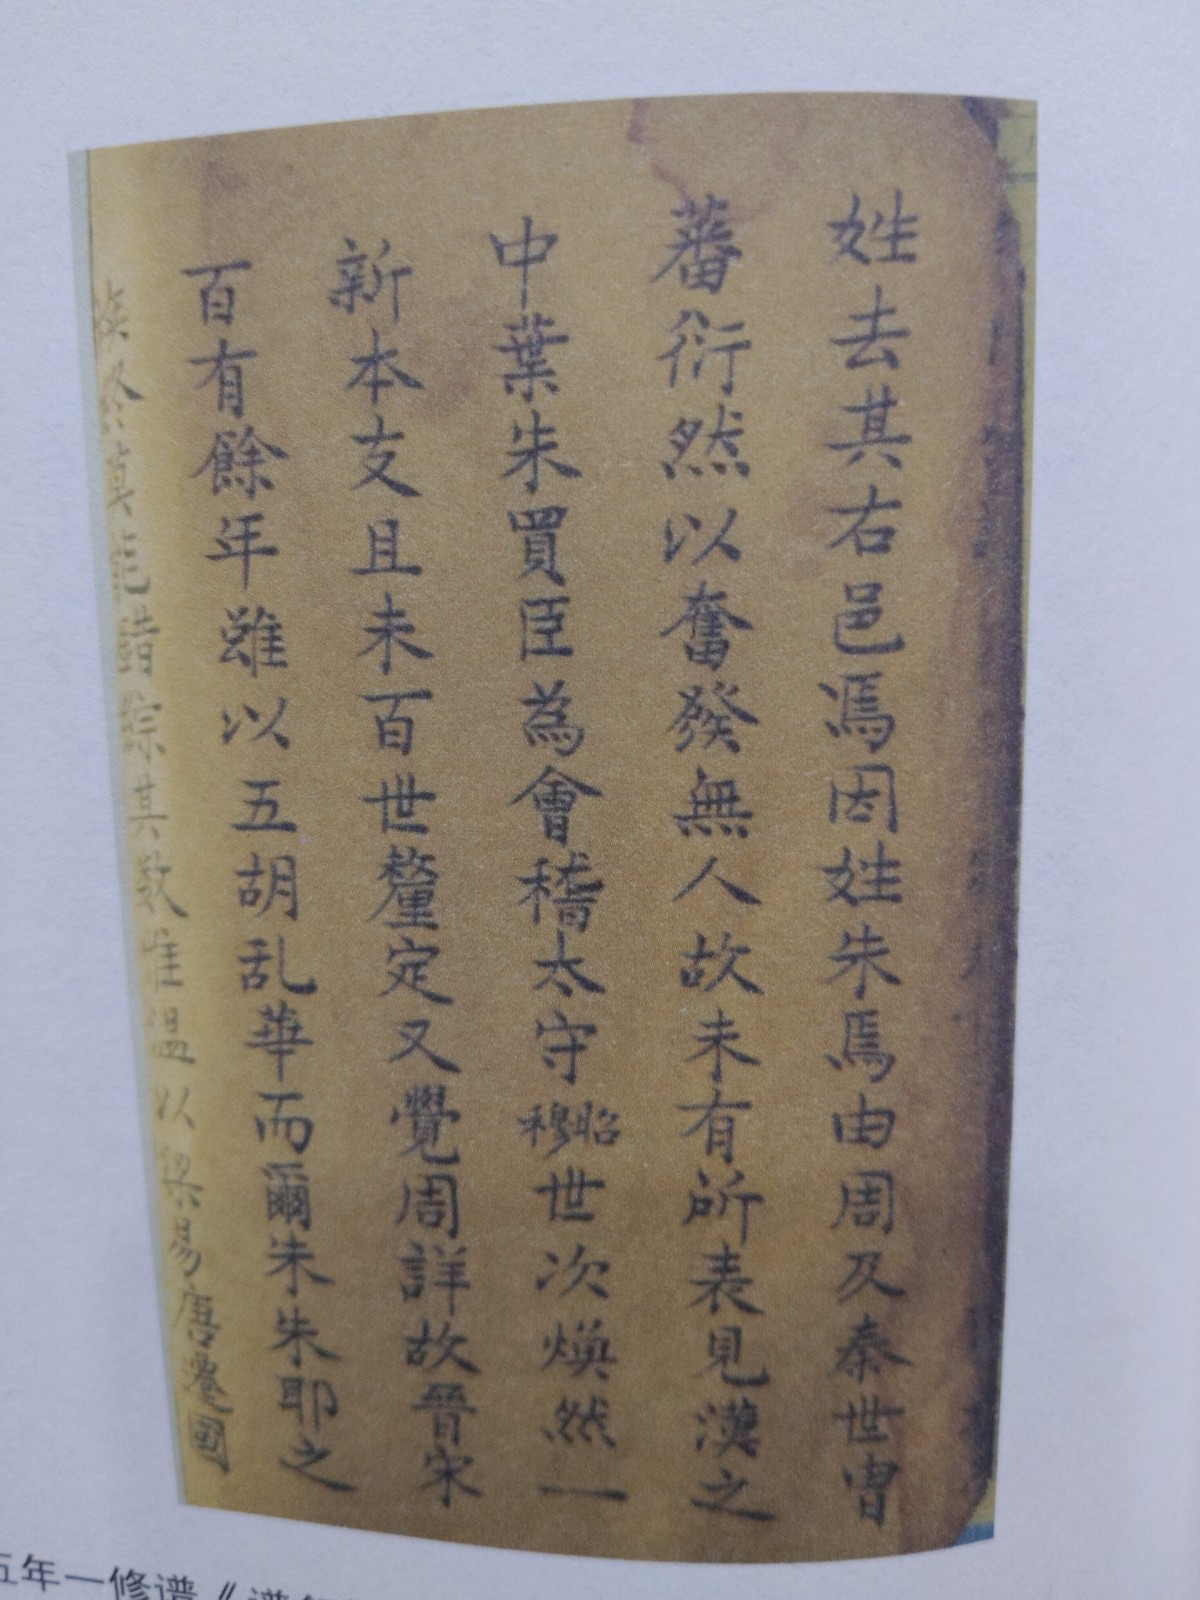 姓去其右邑馮因姓朱焉由周及秦世曾
蕃衍然以奮發無人故未有所表見漢之
中葉朱買臣為會稽太守昭穆世次煥然一
新本支且未百世釐定又覺周詳故晉宋
百有餘年雖以五胡乱華而爾朱朱耶之
族終莫能錯綜其數惟溫以梁易唐遷國
五年一修谱《谱